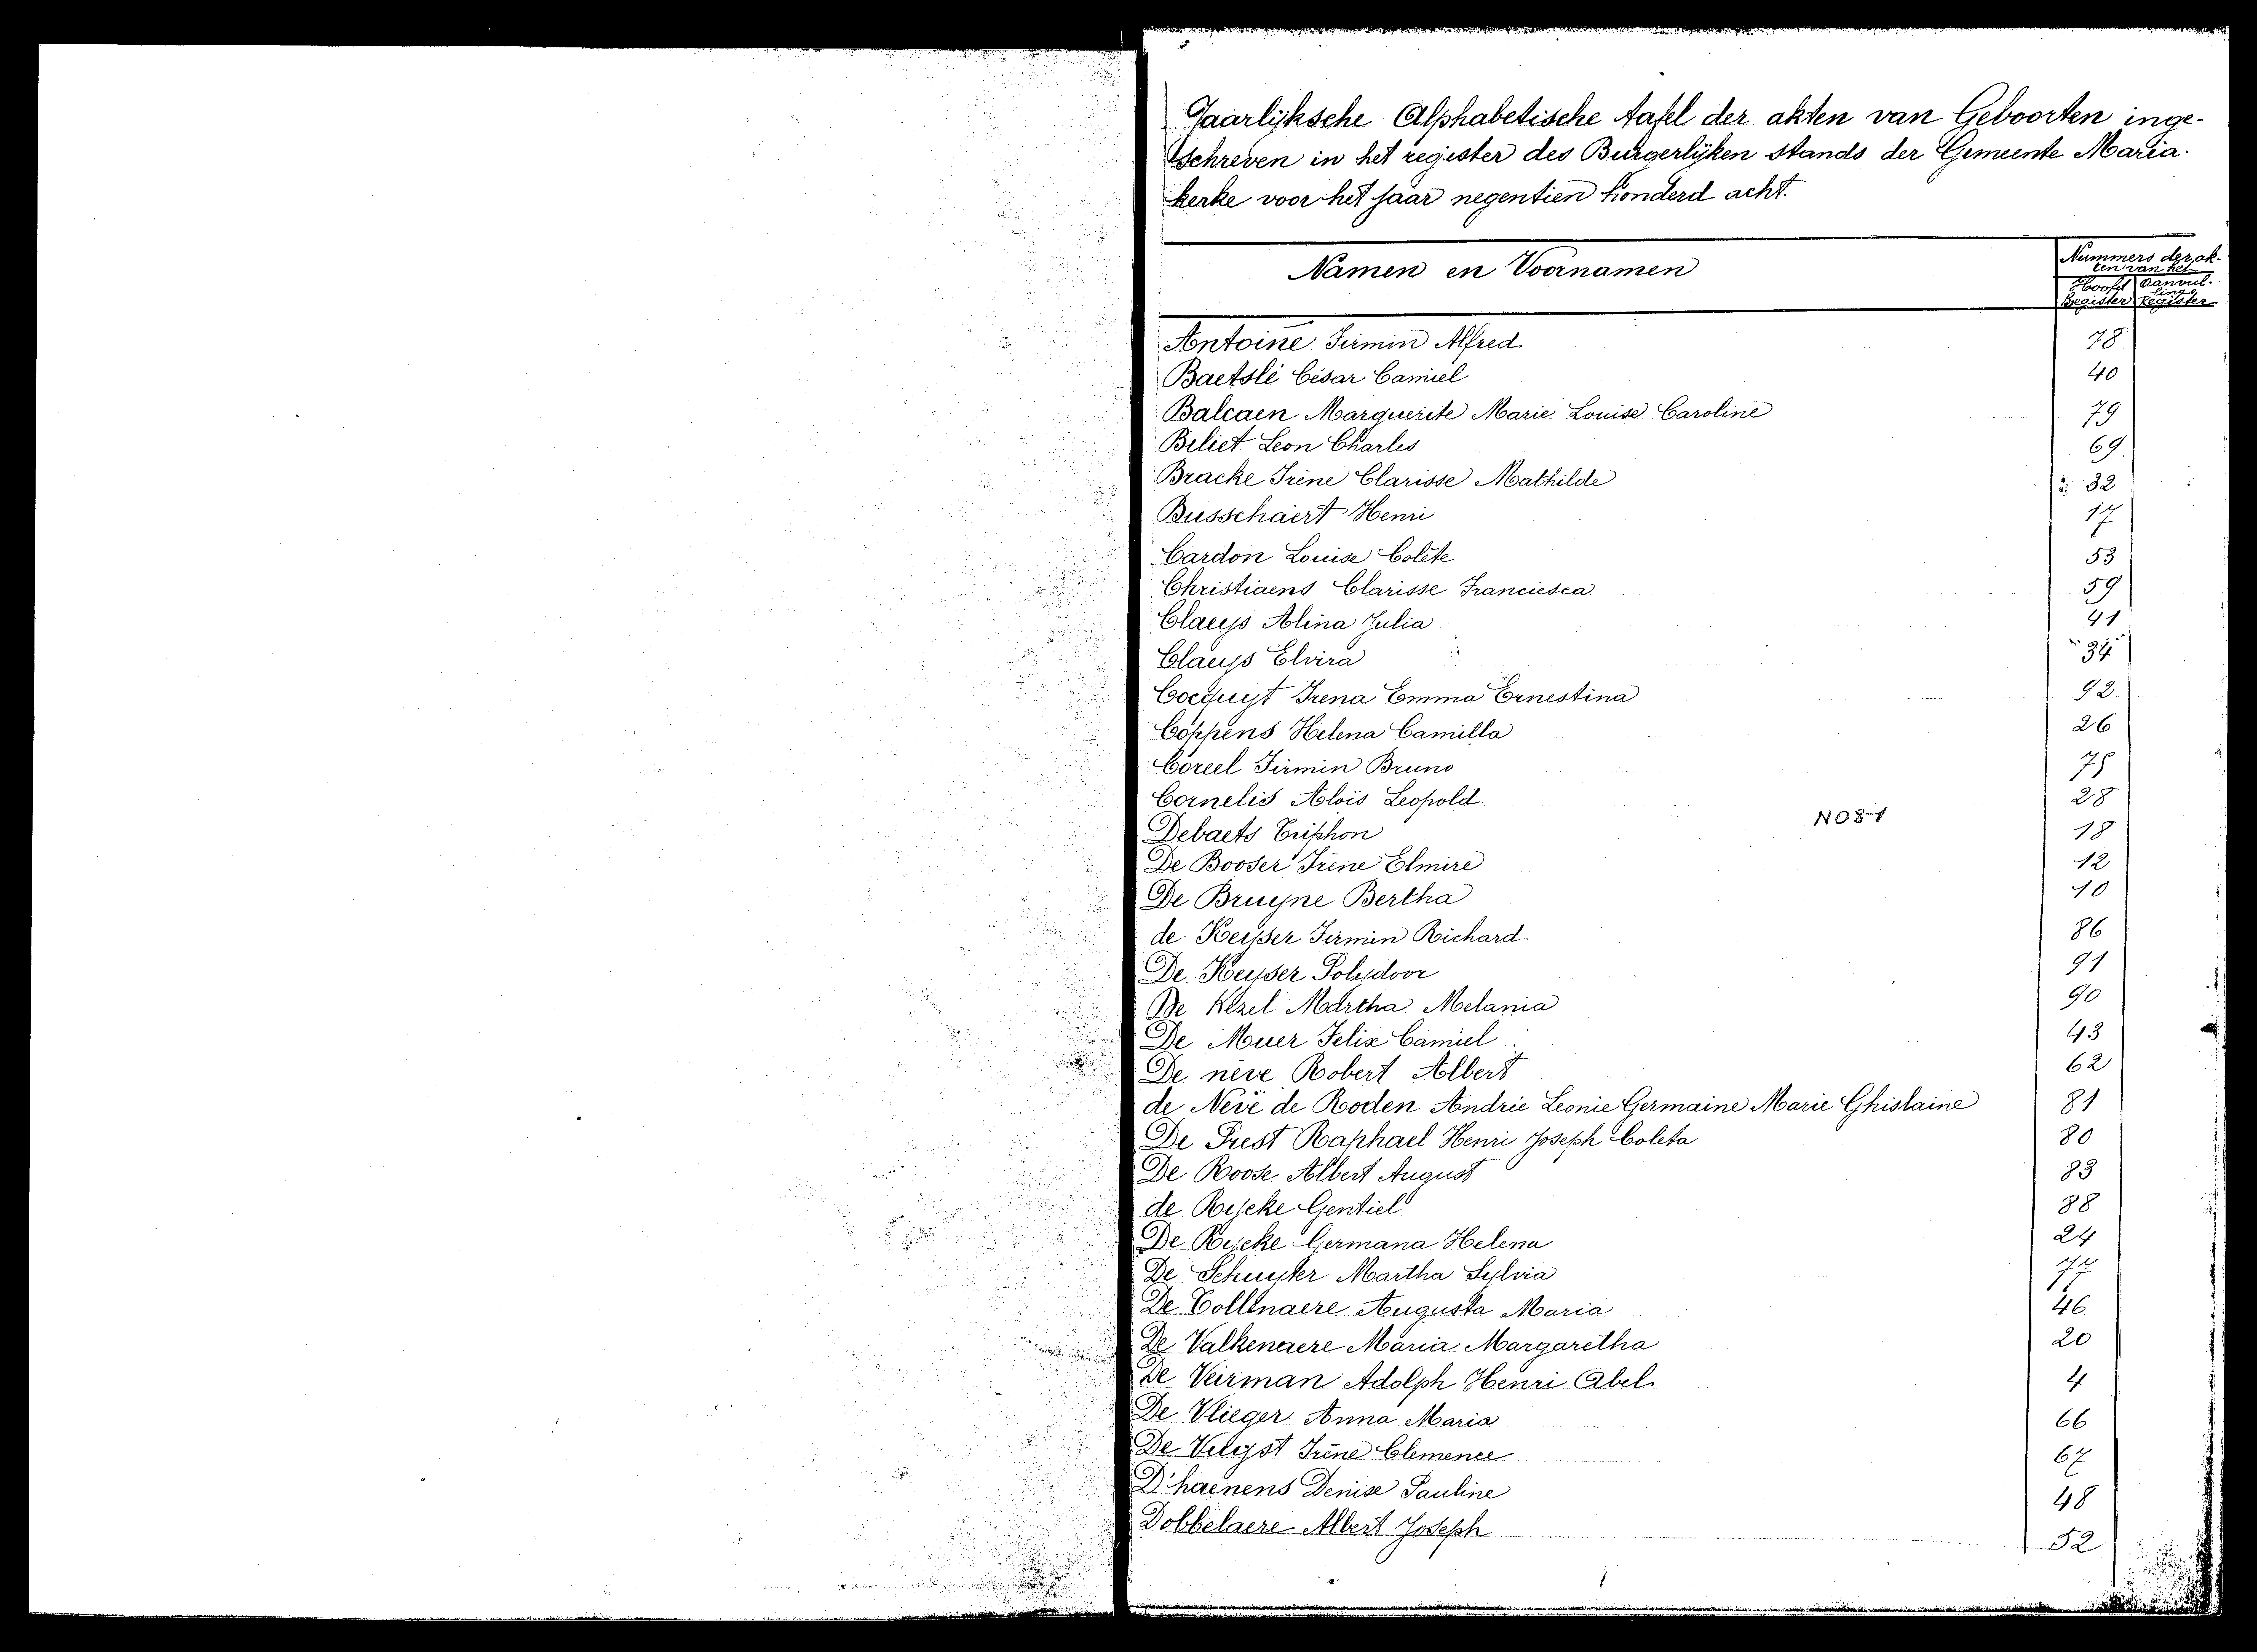 Jaarlijksche Alphabetische tafel der akten van Geboorten inge-
schreven in het register des Burgerlijken stands der Gemeente Maria-
kerke voor het jaar negentien honderd acht.
Namen en Voornamen
Nummers der ak-
ten van het
Hoofd Aanvul-
lings
Register Register
Antoine Firmin Alfred 78
Baetslé César Camiel 40
Balcaen Marguerite Marie Louise Caroline 79
Beliet Leon Charles 69
Bracke Irène Clarisse Mathilde 32
Busschaert Henri 17
Cardon Louise Colète 53
Christiaens Clarisse Franciesca 59
Claeys Alina Julia 41
Claeys Elvira 34
Cocquyt Irena Emma Ernestina 92
Coppens Helena Camilla 26
Coreel Firmin Bruno 75
Cornelis Aloïs Leopold 28
NO8-1
Debaets Triphon 18
De Booser Irène Elmire 12
De Bruyne Bertha 10
de Keyser Firmin Richard 86
De Keyser Polydoor 91
De Kezel Martha Melania 90
De Muer Felix Camiel 43
De neve Robert Albert 62
de Neve de Roden Andrie Leonie Germaine Marie Ghislaine 81
De Prest Raphael Henri Joseph Coleta 80
De Roose Albert August 83
de Rycke Gentiel 88
De Rycke Germana Helena 24
De Schuyter Martha Sylvia 77
De Collenaere Augusta Maria 46
De Valkenaere Maria Margaretha 20
De Veirman Adolph Henri Abel 4
De Vlieger Anna Maria 66
De Vleyst Irène Clemence 67
D'haenens Denise Pauline 48
Dobbelaere Albert Joseph 52